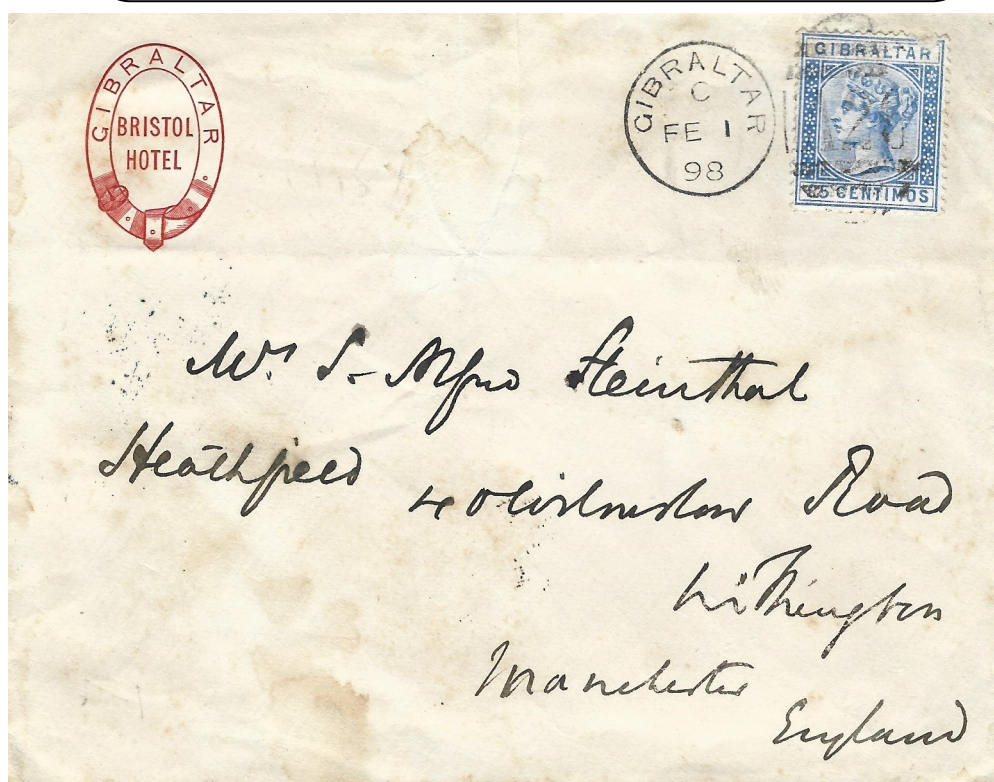 GIBRALTAR
BRISTOL
HOTEL
GIBRALTAR
C
FE 1
98
GIBRALTAR
25 CENTIMOS
Mrs S. Alfred Steinthal
Heathfield
Wilmslow Road
Withington
Manchester
England